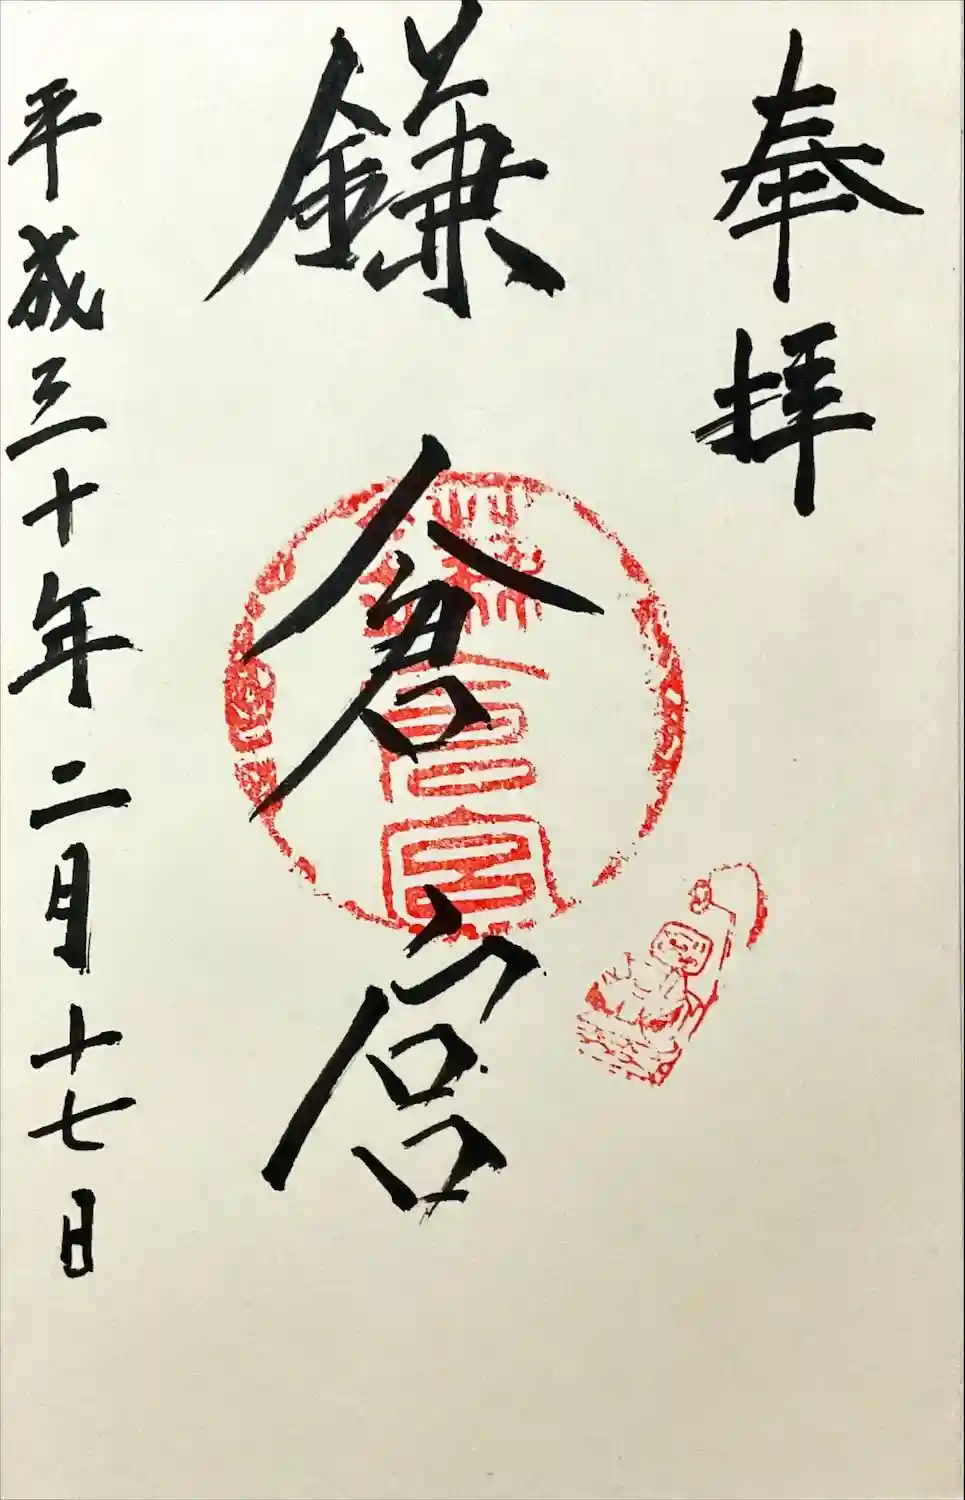 奉拝
鎌倉宮
平成三十年二月十七日
鎌倉宮